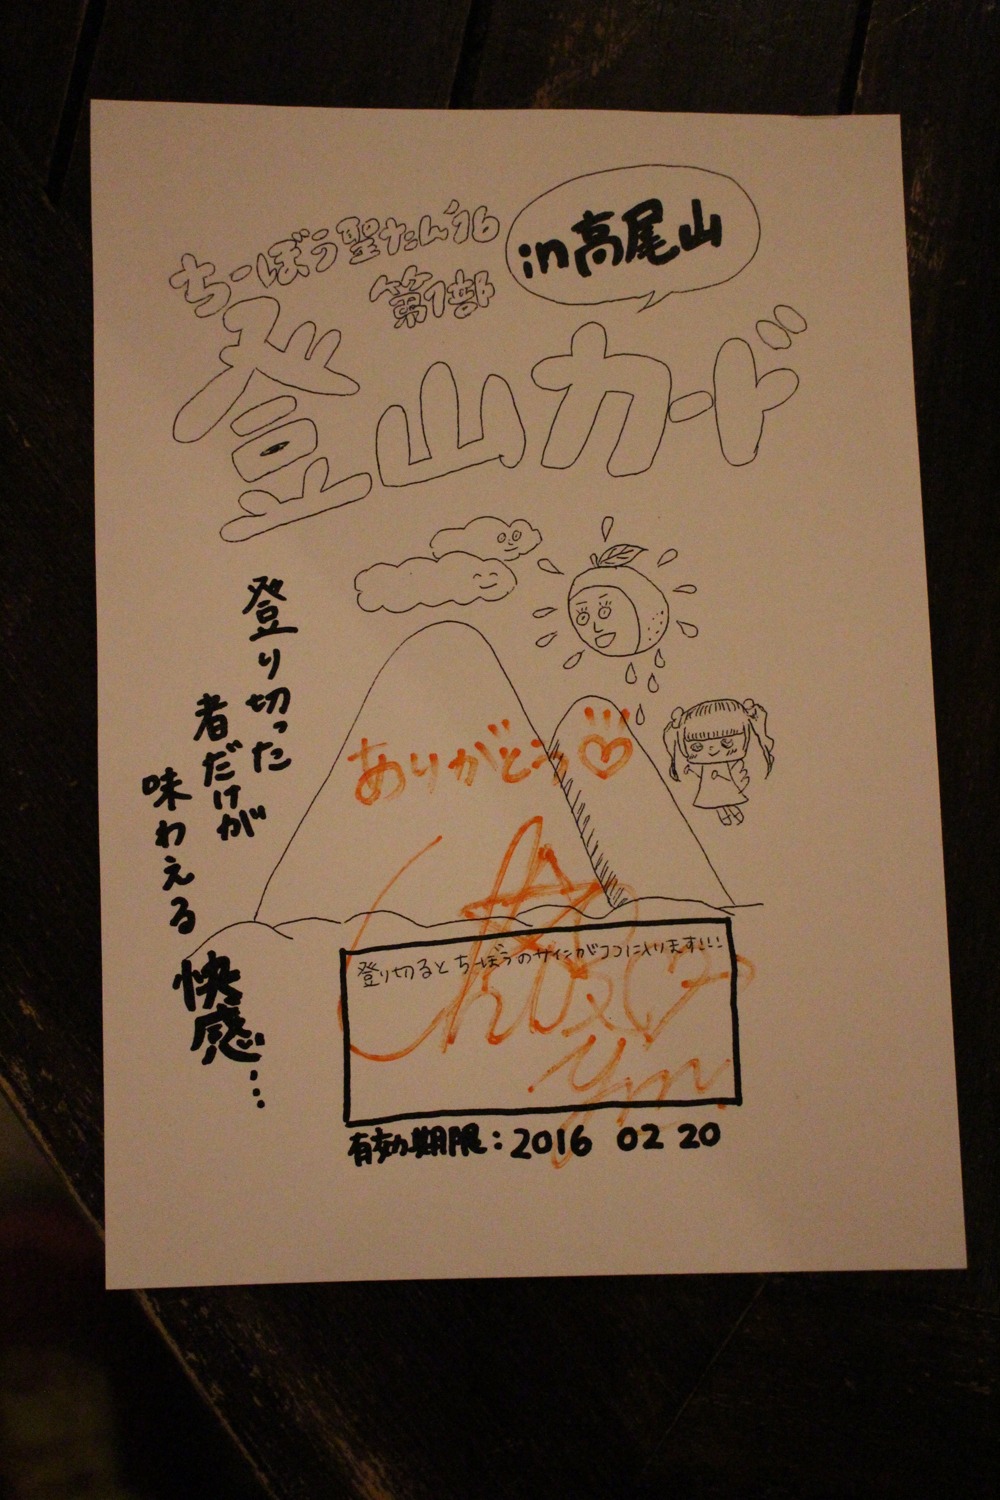 ちーぼう聖たん'16
第1部
in高尾山
登山カード
登り切った
者だけが
味わえる
快感…
ありがとう
登り切るとちーぼうのサインがココに入ります!!!
有効期限:2016 02 20